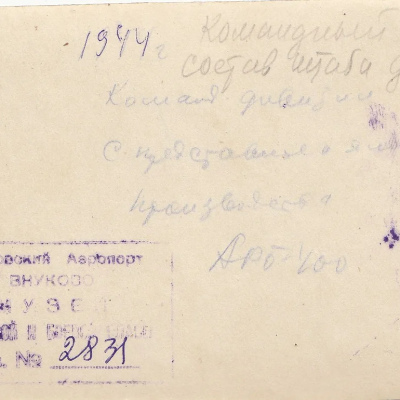 1944 г Командный
состав штаба д
Команд дивизии
С представителями
производства
АРБ-400.
вский Аэропорт
ВНУКОВО
МУЗЕЙ
№ 2831